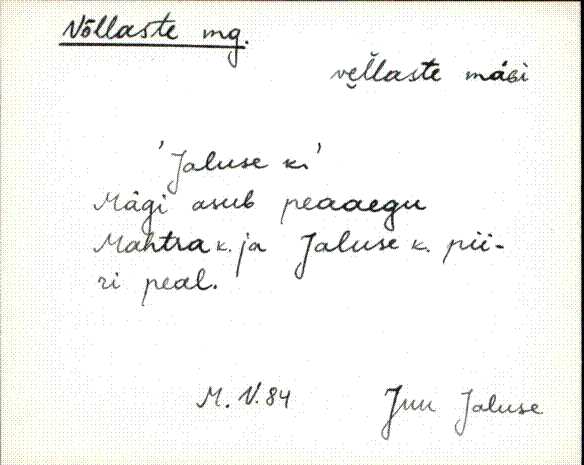 Nõllaste mg.
ve̮l̆laste mäGi
'Jaluse kr'
Mägi asub peaaegu
Mahtra k. ja Jaluse k. pii-
ri peal.
M. V. 84 Juu Jaluse